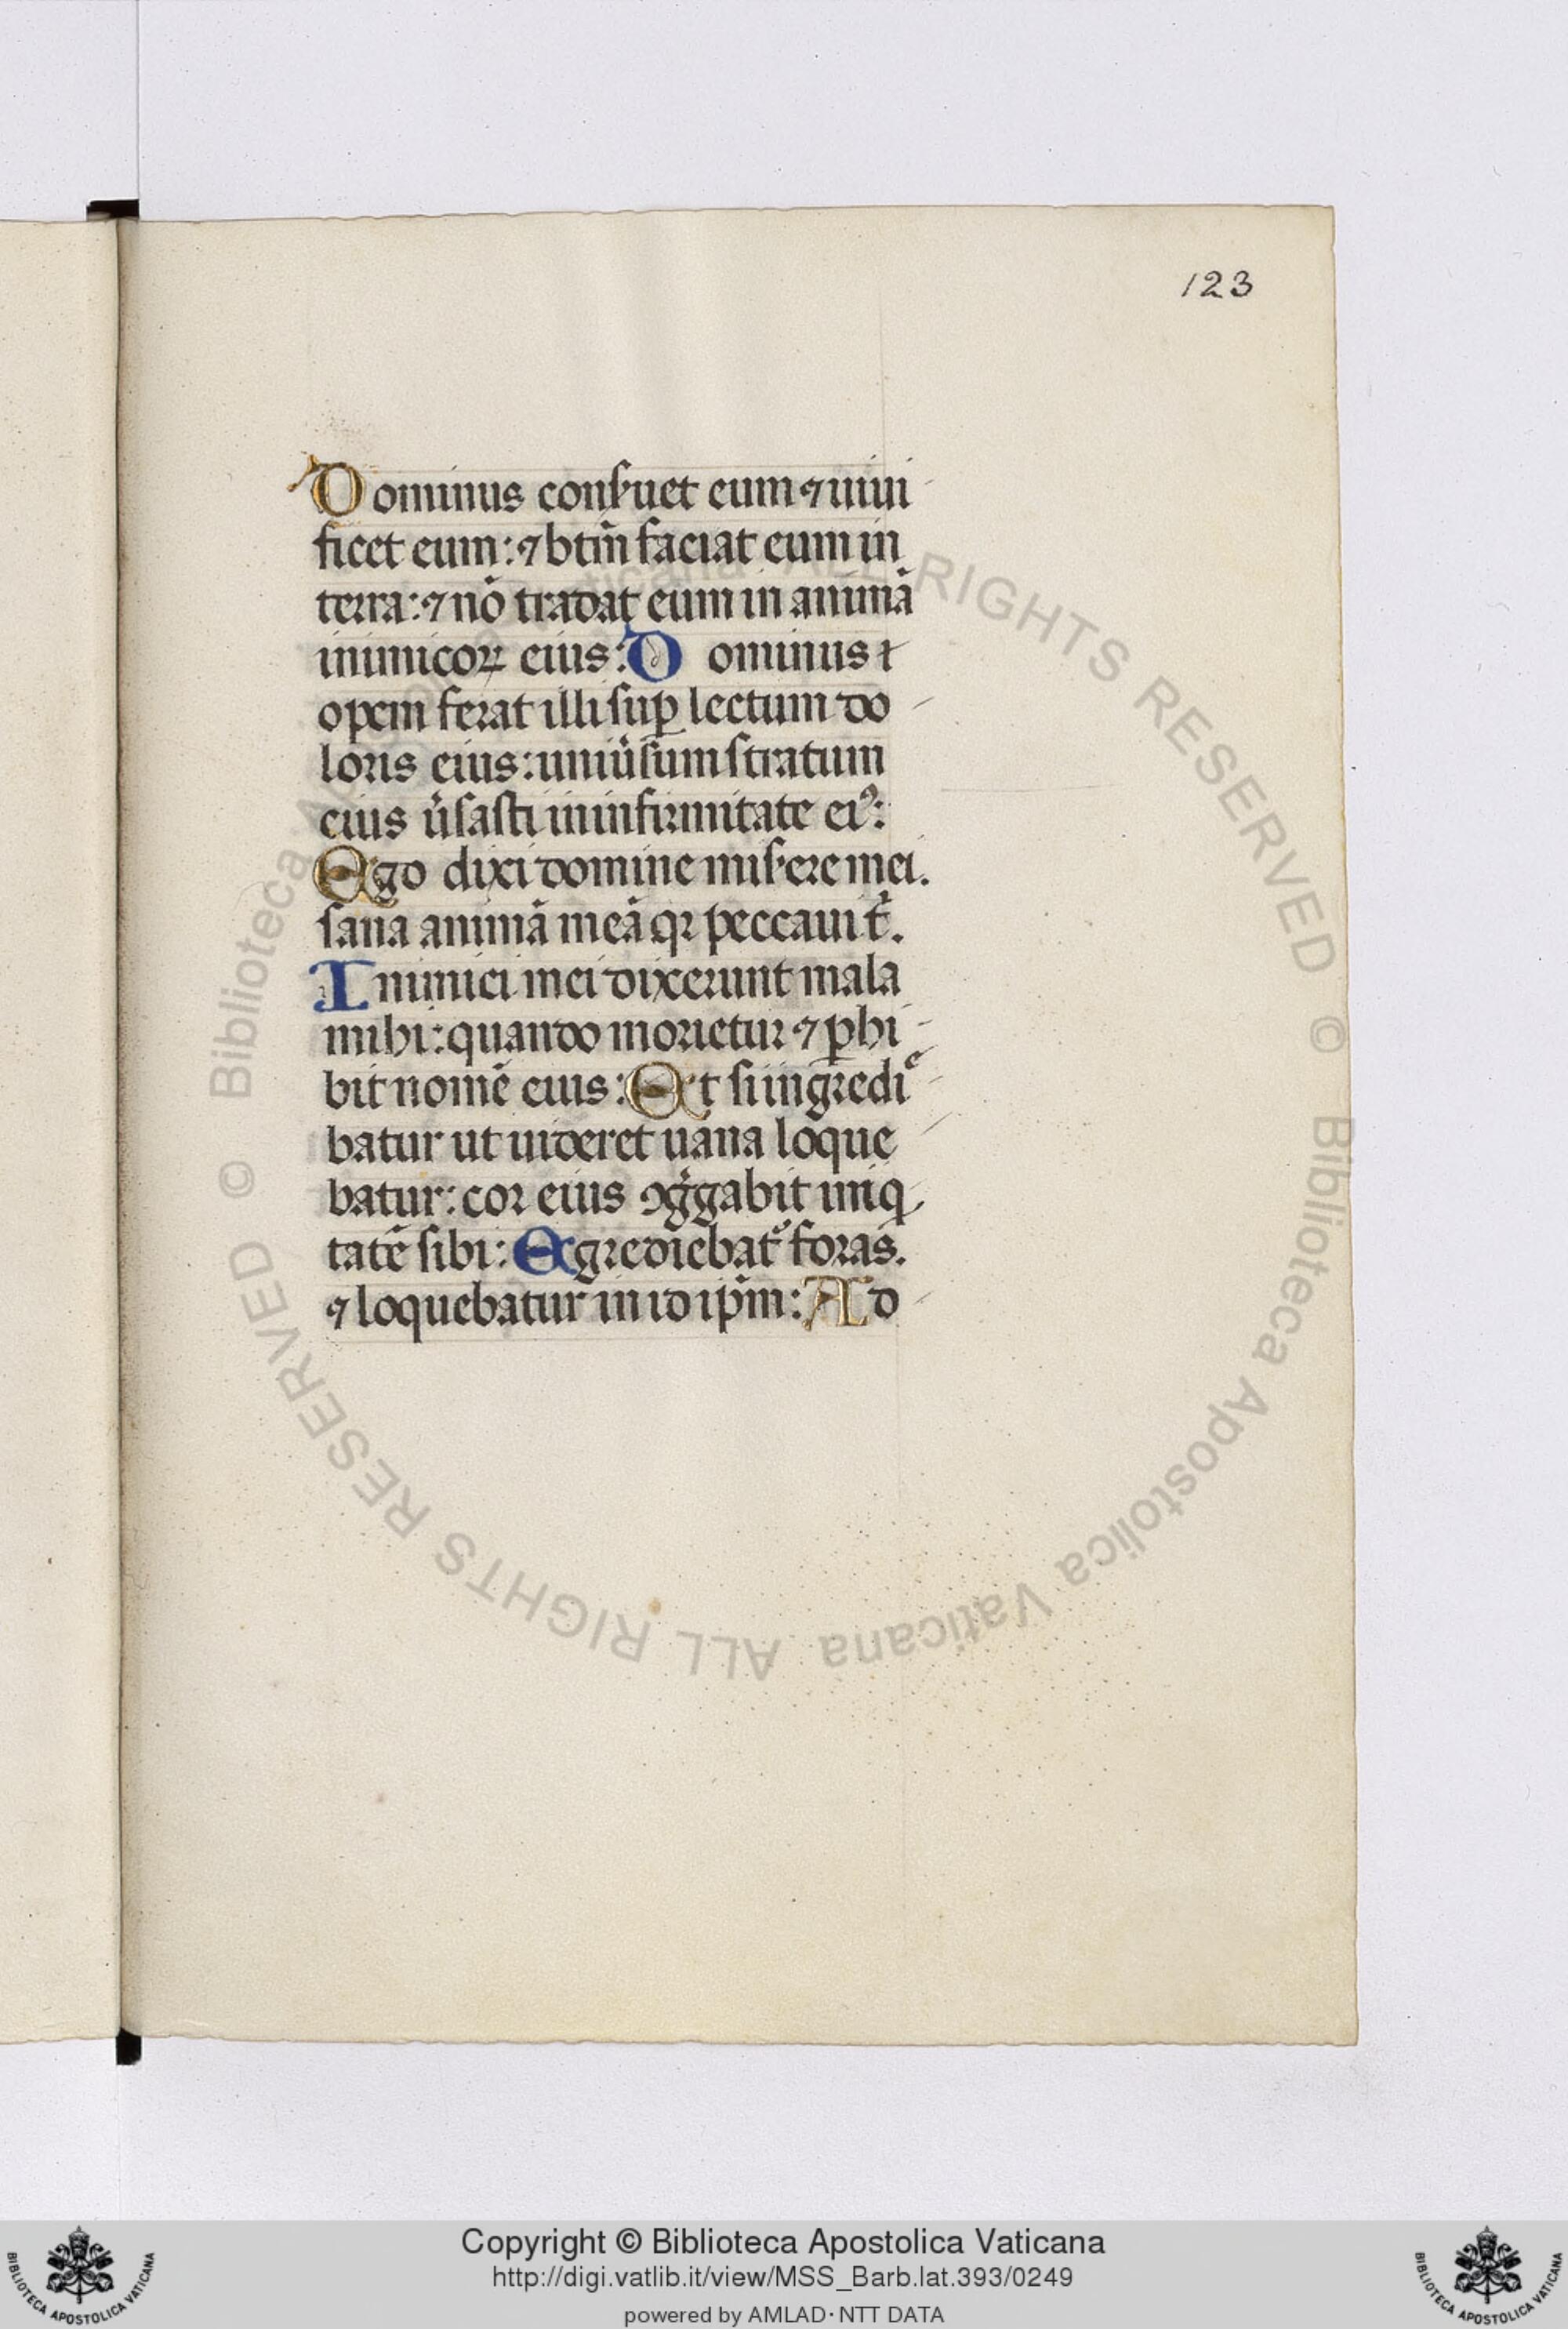 123
Dominus conſꝰuet eum ⁊ uiui
ficet eum: ⁊ btm̄ faciat eum in
terra: ⁊ nō tradat eum in animā
inimicoꝝ eius: Dominus
opem ferat illi ſuꝑ lectum do
loris eius: uniu̾ſum ſtratum
eius u̾ſaſti in infirmitate eiꝰ:
Ego dixi domine miſ̾ere mei.
ſana animā meā qꝛ peccaui t̾.
Inimici mei dixerunt mala
mihi: quando morietur ⁊ ꝑhi
bit nomē eius: Et ſi ingrediᵉ
batur ut uideret uana loque
batur: cor eius ꝯg̾gabit iniq
tatē ſibi: Egrediebat᷑ foras.
⁊ loquebatur in id ip̄m: Ad
© Biblioteca Apostolica Vaticana ALL RIGHTS RESERVED © Biblioteca Apostolica Vaticana ALL RIGHTS RESERVED
Copyright © Biblioteca Apostolica Vaticana
http://digi.vatlib.it/view/MSS_Barb.lat.393/0249
powered by AMLAD·NTT DATA
BIBLIOTECA APOSTOLICA VATICANA
BIBLIOTECA APOSTOLICA VATICANA